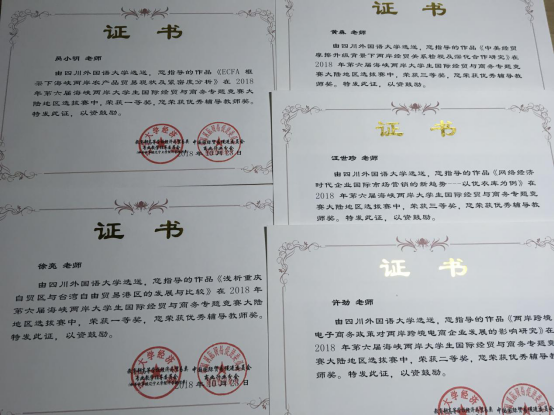 证 书
吴小明 老师
由四川外国语大学选送，您指导的作品《ECFA 框
架下海峡两岸农产品贸易现状及紧密度分析》在 2018
年第六届海峡两岸大学生国际经贸与商务专题竞赛大
陆地区选拔赛中，荣获一等奖，您荣获优秀辅导教师奖。
特发此证，以资鼓励。
2018 年 10 月
证 书
老师
由四川外国语大学选送，您指导的作品《中美经贸
摩擦升级背景下两岸经贸关系检视及深化合作研究》在
2018 年第六届海峡两岸大学生国际经贸与商务专题竞
赛大陆地区选拔赛中，荣获二等奖，您荣获优秀辅导教
师奖。特发此证，以资鼓励。
证 书
汪世珍 老师
由四川外国语大学选送，您指导的作品《网络经济
时代企业国际市场营销的新趋势---以优衣库为例》在
2018 年第六届海峡两岸大学生国际经贸与商务专题竞
赛大陆地区选拔赛中，荣获三等奖，您荣获优秀辅导教
师奖。特发此证，以资鼓励。
证 书
徐亮 老师
由四川外国语大学选送，您指导的作品《浅析重庆
自贸区与台湾自由贸易港区的发展与比较》在 2018 年
第六届海峡两岸大学生国际经贸与商务专题竞赛大陆
地区选拔赛中，荣获一等奖，您荣获优秀辅导教师奖。
特发此证，以资鼓励。
证 书
许劲 老师
由四川外国语大学选送，您指导的作品《两岸跨境
电子商务政策对两岸跨境电商企业发展的影响研究》在
2018 年第六届海峡两岸大学生国际经贸与商务专题竞
赛大陆地区选拔赛中，荣获二等奖，您荣获优秀辅导教
师奖。特发此证，以资鼓励。